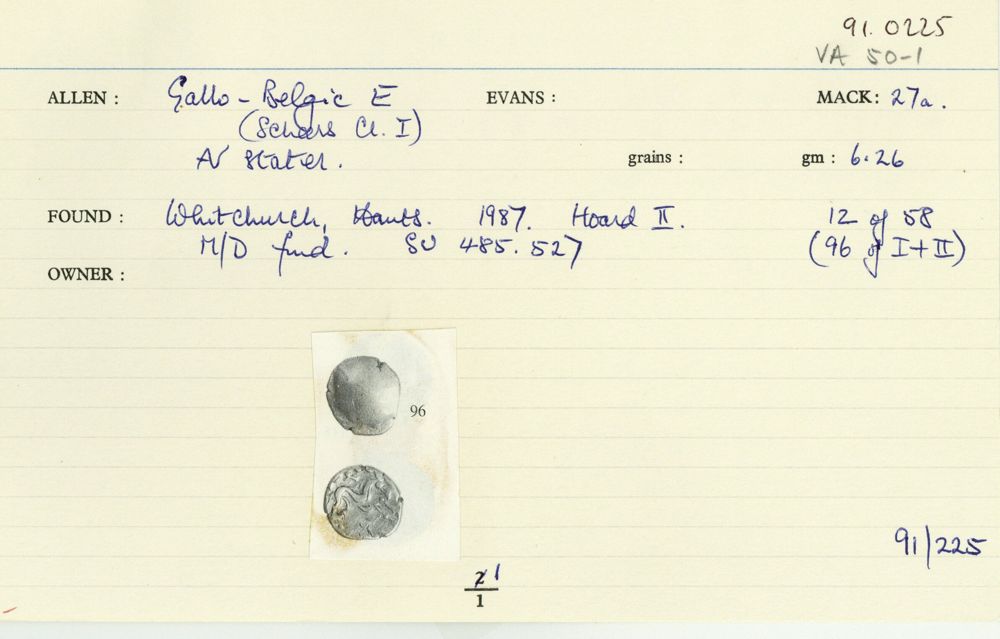 91.0225
VA 50-1
ALLEN : Gallo-Belgic E EVANS : MACK: 27a.
(Scheers Cl. I)
AV stater. grains : gm : 6.26
FOUND : Whitchurch, Hants. 1987. Hoard II. 12 of 58
M/D find. SU 485.527 (96 of I+II)
OWNER :
96
91/225
1
1